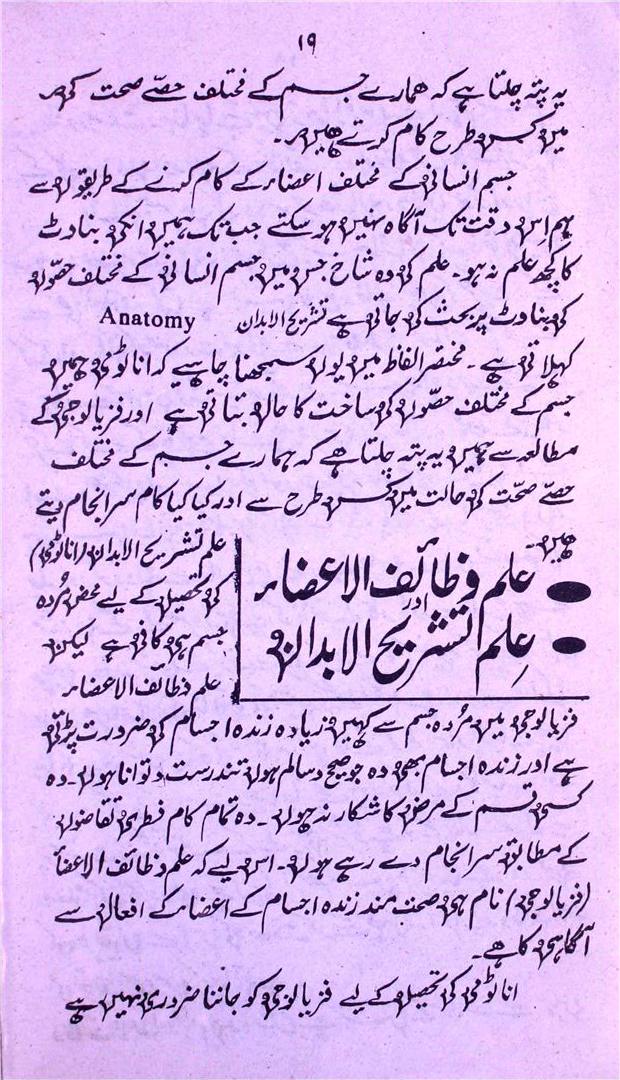 ۱۹
یہ پتہ چلتا ہے کہ ہمارے جسم کے مختلف حصے صحت کی
میں کس طرح کام کرتے ہیں۔
جسم انسانی کے مختلف اعضاء کے کام کرنے کے طریقوں سے
ہم اس وقت تک آگاہ نہیں ہو سکتے جب تک ہمیں انکی بناوٹ
کا کچھ علم نہ ہو۔ علم کی وہ شاخ جس میں جسم انسانی کے مختلف حصوں
کی بناوٹ پر بحث کی جاتی ہے تشریح الابدان Anatomy
کہلاتی ہے۔ مختصر الفاظ میں یوں سمجھنا چاہیے کہ اناٹومی ہمیں
جسم کے مختلف حصوں کی ساخت کا حال بتاتی ہے اور فزیالوجی کے
مطالعہ سے ہمیں یہ پتہ چلتا ہے کہ ہمارے جسم کے مختلف
حصے صحت کی حالت میں کس طرح سے اور کیا کیا کام سرانجام دیتے
ہیں۔
● علم وظائف الاعضاء
اور
● علم التشریح الابدان
علم تشریح الابدان (اناٹومی)
کی تحصیل کے لیے محض مُردہ
جسم ہی کافی ہے لیکن
علم وظائف الاعضاء
فزیالوجی میں مُردہ جسم سے کہیں زیادہ زندہ اجسام کی ضرورت پڑتی
ہے اور زندہ اجسام بھی وہ جو صحیح و سالم ہوں تندرست و توانا ہوں۔ وہ
کسی قسم کے مرض کا شکار نہ ہوں۔ وہ تمام کام فطری تقاضوں
کے مطابق سرانجام دے رہے ہوں۔ اس لیے کہ علم وظائف الاعضأ
(فزیالوجی) نام ہی صحت مند زندہ اجسام کے اعضاء کے افعال سے
آگاہی کا ہے۔
اناٹومی کی تحصیل کے لیے فزیالوجی کو جاننا ضروری نہیں ہے